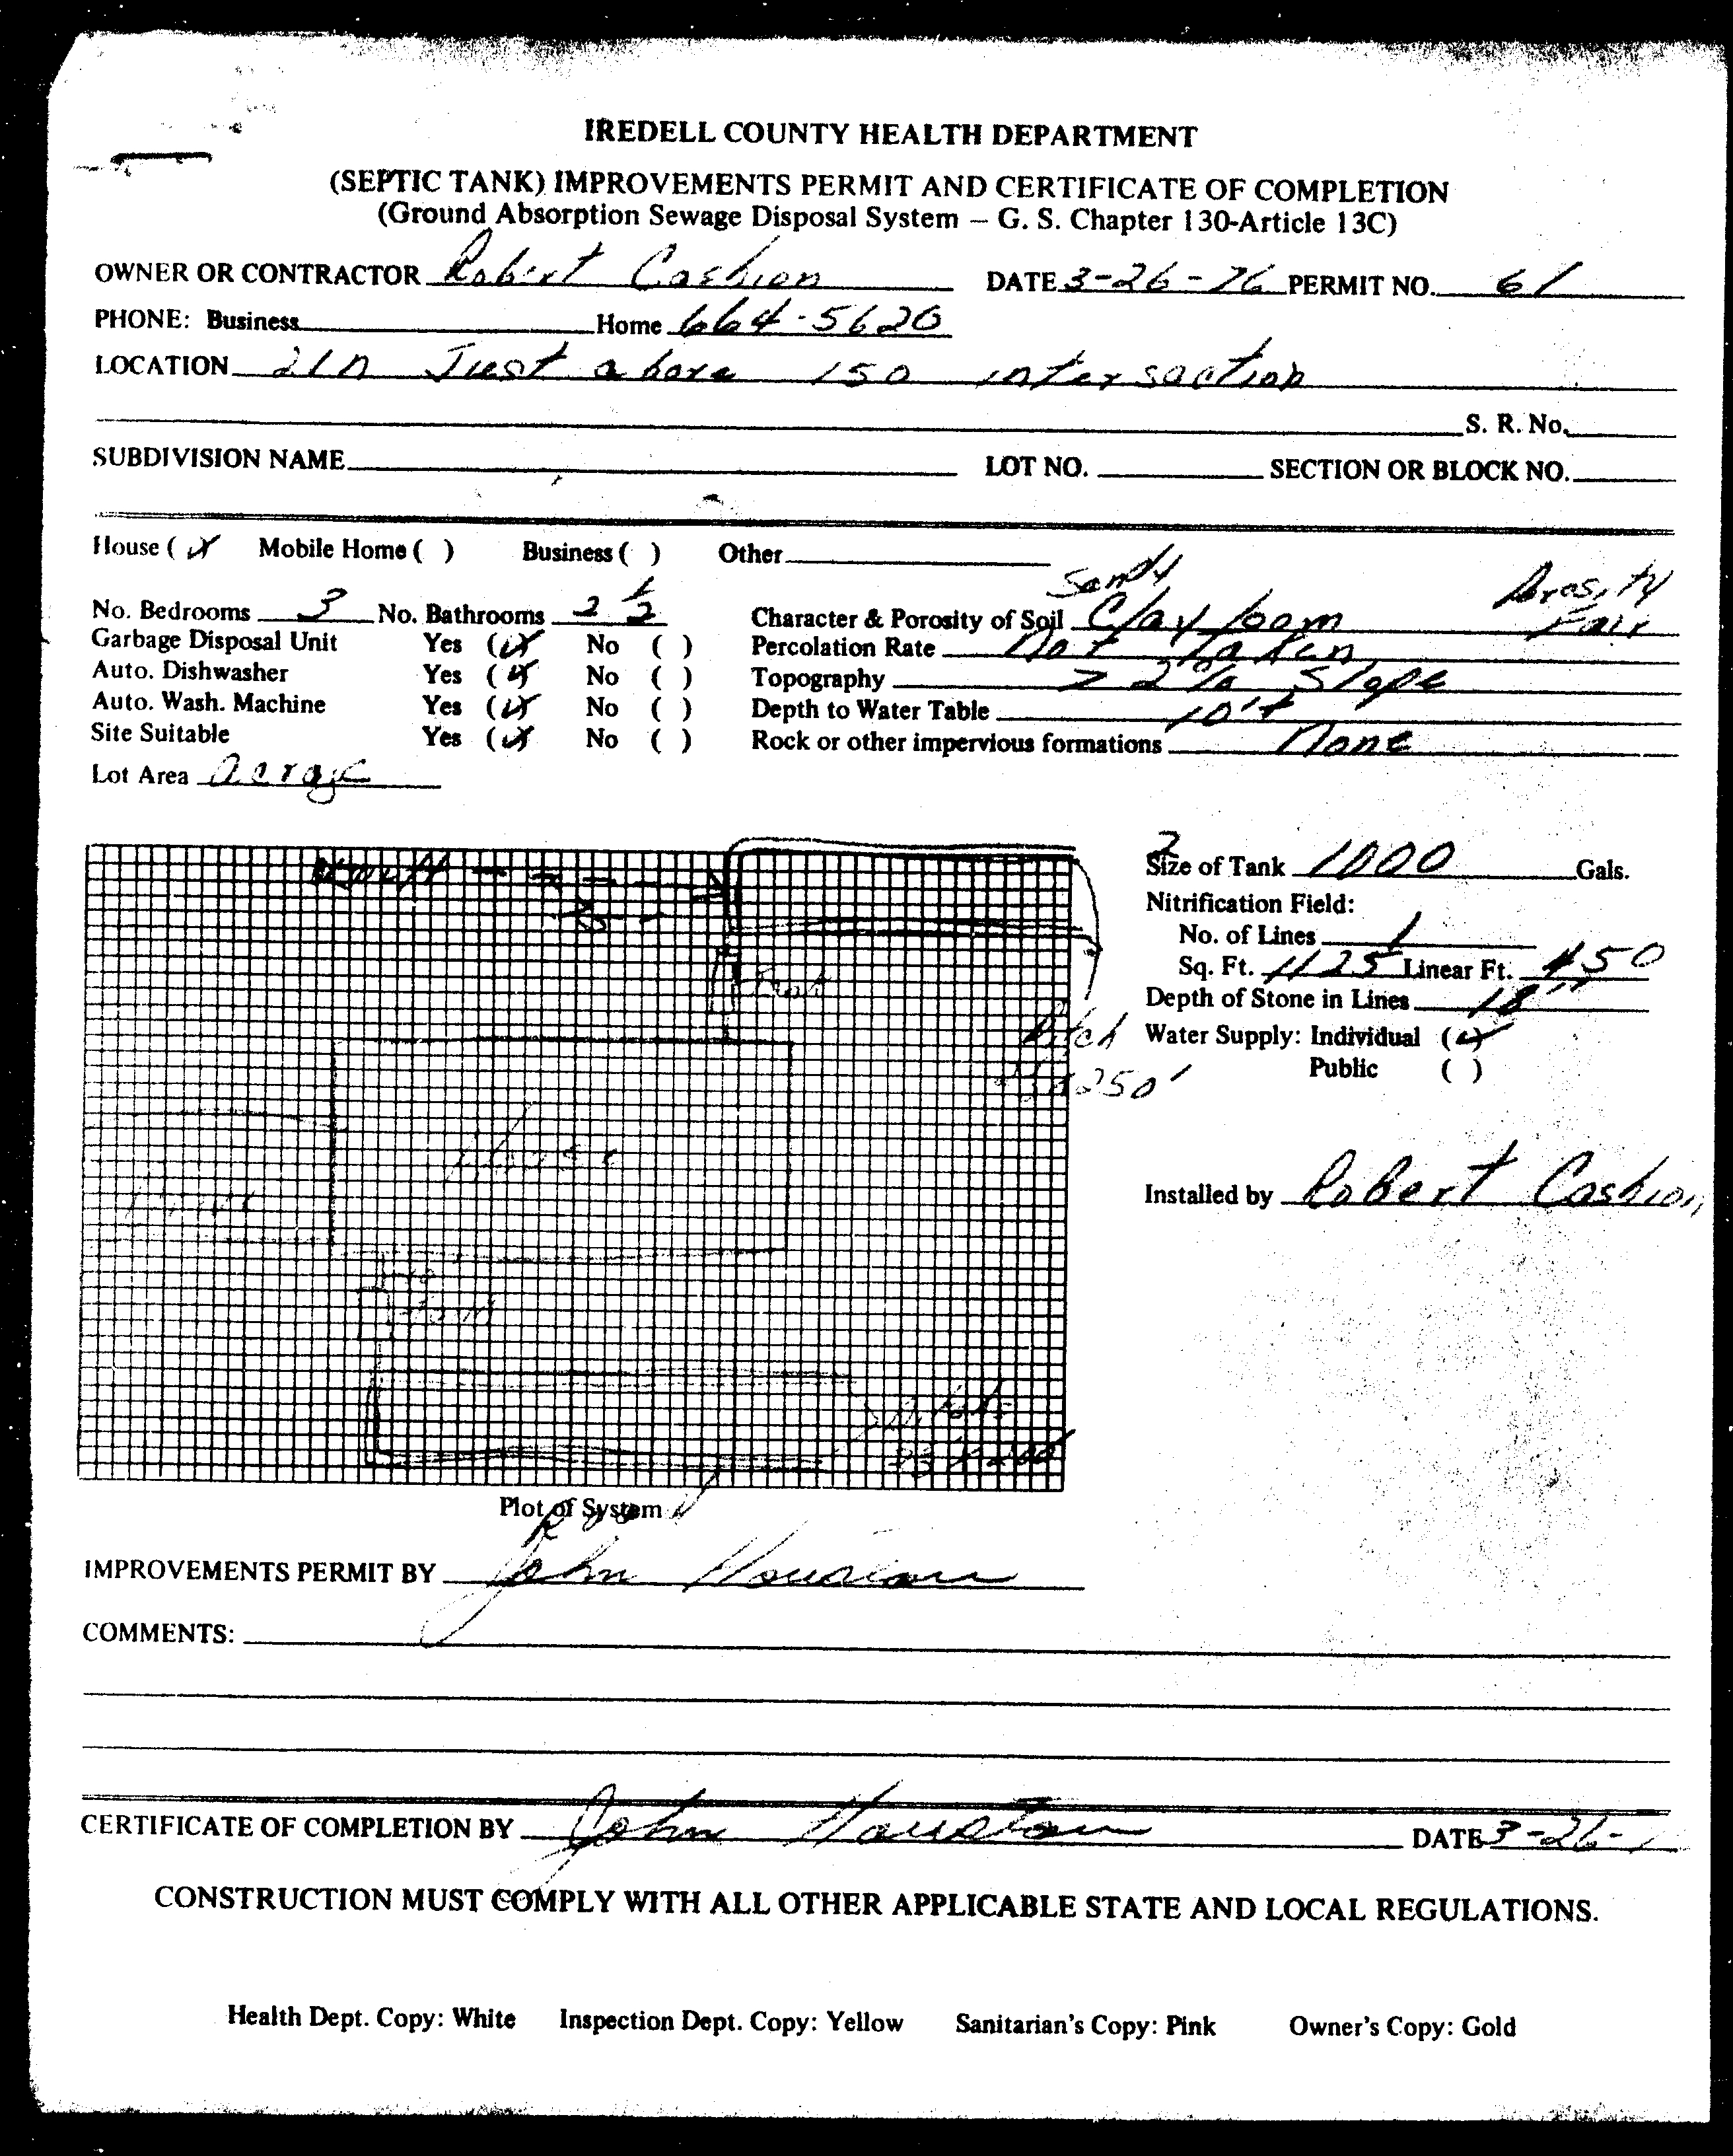 IREDELL COUNTY HEALTH DEPARTMENT
(SEPTIC TANK) IMPROVEMENTS PERMIT AND CERTIFICATE OF COMPLETION
(Ground Absorption Sewage Disposal System – G. S. Chapter 130-Article 13C)
OWNER OR CONTRACTOR Robert Cashion DATE 3-26-76 PERMIT NO. 61
PHONE: Business Home 664-5620
LOCATION 21N Just above 150 intersection
S. R. No.
SUBDIVISION NAME LOT NO. SECTION OR BLOCK NO.
House (X) Mobile Home ( ) Business ( ) Other
No. Bedrooms 3 No. Bathrooms 2 1/2
Garbage Disposal Unit Yes (X) No ( )
Auto. Dishwasher Yes (X) No ( )
Auto. Wash. Machine Yes (X) No ( )
Site Suitable Yes (X) No ( )
Lot Area acrage
Character & Porosity of Soil Sandy Clay loam Porosity Fair
Percolation Rate Not taken
Topography > 2% Slope
Depth to Water Table 10'+
Rock or other impervious formations None
2
Size of Tank 1000 Gals.
Nitrification Field:
No. of Lines 1
Sq. Ft. 1125 Linear Ft. 450
Depth of Stone in Lines 18"
Water Supply: Individual (✓)
Public ( )
Installed by Robert Cashion
Ditch
250'
House
Plot of System
IMPROVEMENTS PERMIT BY John Houston
COMMENTS:
CERTIFICATE OF COMPLETION BY John Houston DATE 3-26-
CONSTRUCTION MUST COMPLY WITH ALL OTHER APPLICABLE STATE AND LOCAL REGULATIONS.
Health Dept. Copy: White Inspection Dept. Copy: Yellow Sanitarian's Copy: Pink Owner's Copy: Gold